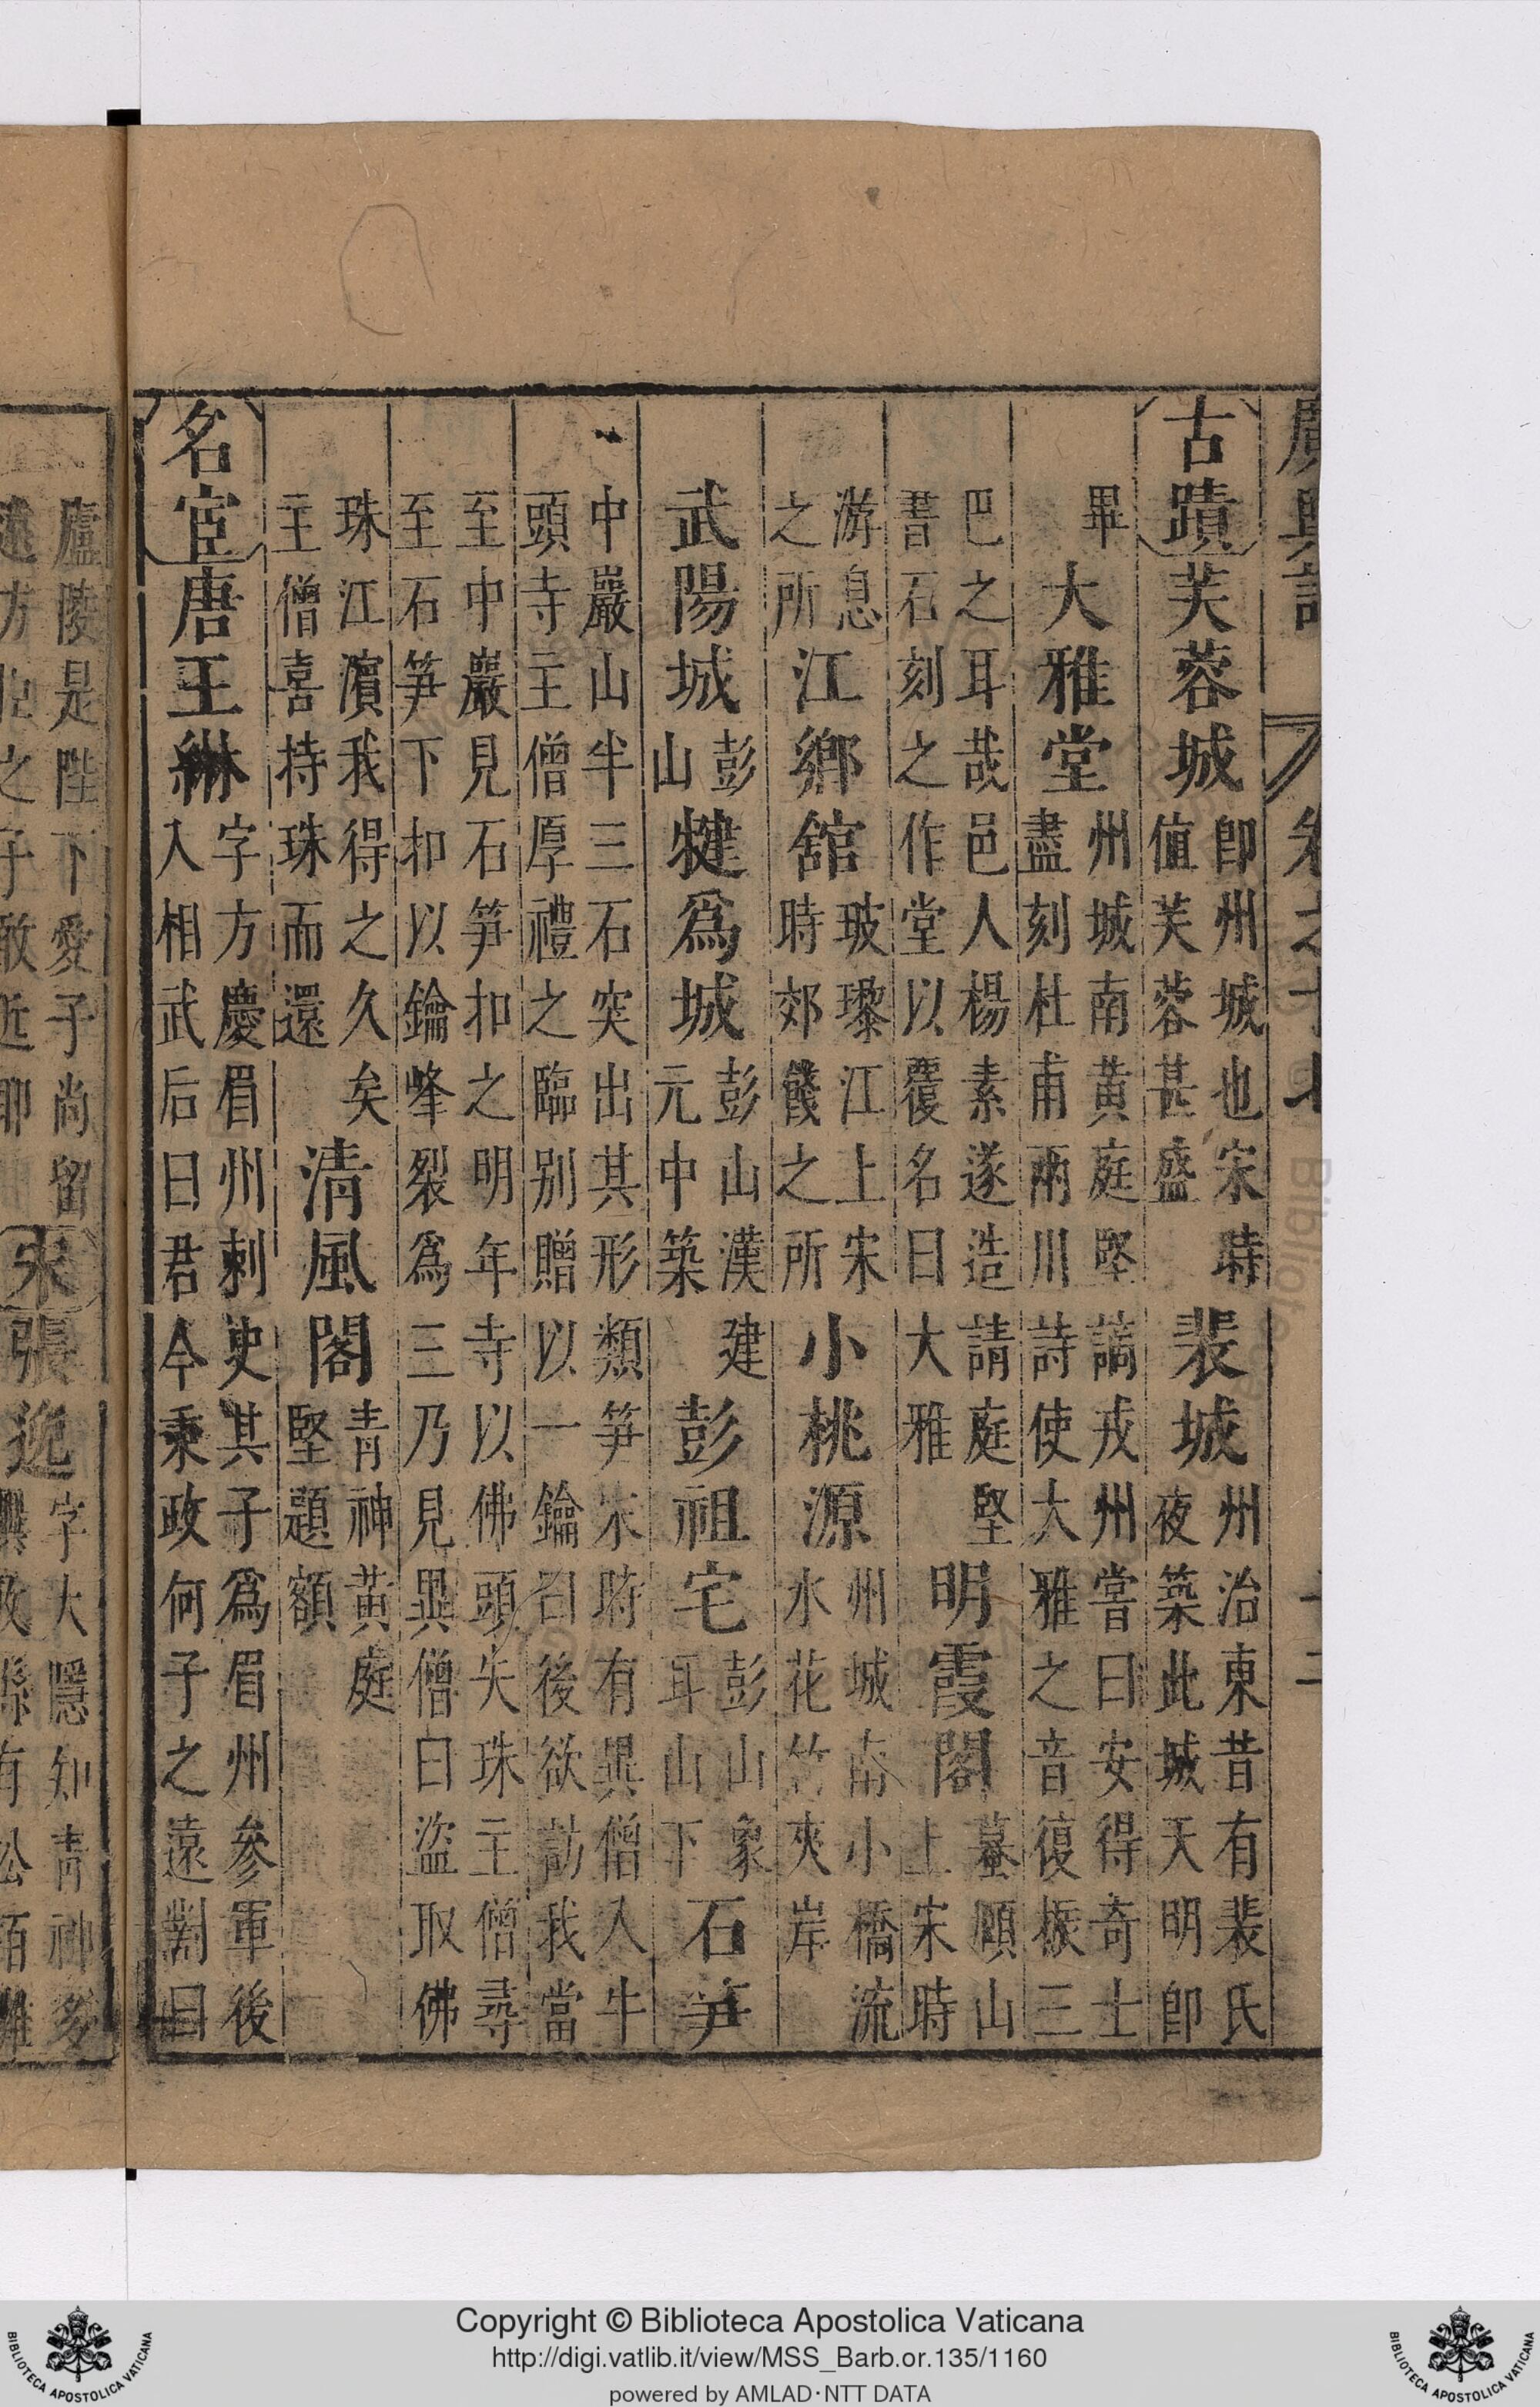 廣輿記 卷之十
古蹟 芙蓉城 即州城也宋時值芙蓉甚盛 裴城 州治東昔有裴氏夜築此城天明即
畢 大雅堂 州城南黃庭堅謫戎州嘗曰安得奇士盡刻杜甫兩川詩使大雅之音復振三
巴之耳哉邑人楊素遂造請庭堅書石刻之作堂以覆名曰大雅 明霞閣 蟇頤山上宋時
游息之所 江鄉舘 玻瓈江上宋時郊餞之所 小桃源 州城南小橋流水花竹夾岸
武陽城 彭山 犍爲城 彭山漢建元中築 彭祖宅 彭山象耳山下 石笋
中巖山半三石突出其形類笋宋時有異僧入牛頭寺主僧厚禮之臨別贈以一鑰曰後欲訪我當
至中巖見石笋扣之明年寺以佛頭失珠主僧尋至石笋下扣以鑰峰裂爲三乃見異僧曰盜取佛
珠江濵我得之久矣主僧喜持珠而還 清風閣 青神黃庭堅題額
名宦 唐王綝 字方慶眉州刺史其子爲眉州參軍後入相武后曰君今秉政何子之遠對曰
廬陵是陛下愛子尚留遠方臣之子敢近 宋 張逸 字大隱知青神多
Copyright © Biblioteca Apostolica Vaticana
http://digi.vatlib.it/view/MSS_Barb.or.135/1160
powered by AMLAD·NTT DATA
BIBLIOTECA APOSTOLICA VATICANA
BIBLIOTECA APOSTOLICA VATICANA